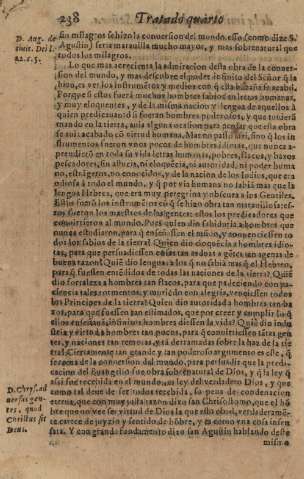 238 Tratado quarto
D. Aug. de
ciuit. Dei l.
22. c. 5.
sin milagros se hizo la conuersion del mundo, esso (como dize S.
Agustin) seria marauilla mucho mayor, y mas sobrenatural que
todos los milagros.
Lo que mas acrecienta la admiracion desta obra de la conuer-
sion del mundo, y mas descubre el poder infinito del Señor q̃ la
hizo, es ver los instrumentos y medios con q̃
Porque si estos fuera muchos hombres sabios en letras humanas,
y muy eloquentes, y de la misma nacion y lengua de aquellos à
quien predicauan: ò si fueran hombres poderosos, y que tuuierã
mando en la tierra, auia alguna ocasion para pensar que esta obra
se auia acabado cõ virtud humana. Mas no passa assi, sino q̃ los in-
strumentos fueron vnos pocos de hombres idiotas, que nunca a-
prendierõ en toda su vida letras humanas, pobres, flacos, y baxos
pescadores, sin astucia, ni eloquẽcia, ni autoridad, ni poder huma
no, estrãgeros, no conocidos, y de la nacion de los Iudios, que era
odiosa à todo el mundo, y q̃ por via humana no sabiã mas que la
lengua Hebrea, que era muy peregrina y obscura à los Gentiles.
Estos fuerõ los instrumẽtos cõ q̃ se hizo obra tan marauillosa: es-
tos fueron los maestros de las gentes: estos los predicadores que
conuirtieron al mundo. Pues quien dio sabiduria à hombres que
nunca estudiaron, para q̃ enseñassen el mũdo, y conuenciessen to
dos los sabios de la tierra? Quien dio eloquẽcia à hombres idio-
tas, para que persuadiessen
buena razon? Quiẽ dio lenguas à los q̃ no sabiã mas q̃ el Hebreo,
para q̃ fuessen entẽdidos de todas las naciones de la tierra? Quiẽ
dio fortaleza à hombres tan flacos, para que padeciendo con pa-
ciencia tales tormentos, y muriẽdo con alegria, venciessen todos
los Principes de la tierra? Quien dio autoridad à hombres tan ba-
xos, para que fuessen tan estimados, que por creer y cumplir lo q̃
ellos enseñauan, infinitos hombres diessen la vida? Quiẽ dio indu
stria y virtud à hombres tan pocos, para q̃ conuirtiessen tãtas gen
tes, y naciones tan remotas, y tã derramadas sobre la haz de la tie
rra? Ciertamente tan grande y tan poderoso argumento es este, q̃
se toma de la conuersion del mundo, para persuadir que la predi-
cacion del Euangelio fue obra sobrenatural de Dios, y q̃ la ley q̃
assi fue recebida en el mundo, es ley del verdadero Dios, y que
como tal deue de ser todos recebida, so pena de condenacion
eterna, que con muy justa razon dixo san Chrisostomo, que el hõ
bre que no vee ser virtud de Dios la que esto obrò, verdaderamẽ-
te carece de juyzio y sentido de hõbre, y es como vna cosa insen
sata. Y con grand fundamento dixo san Agustin hablando deste
D. Chrys. ad
uersus gen-
tes, quod
Christus sit
Deus.
mismo